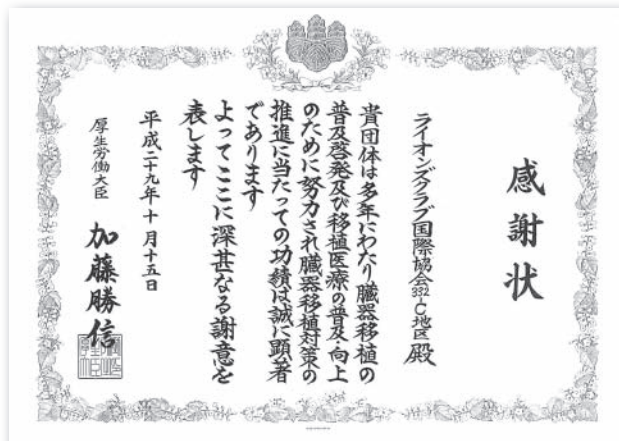 感謝状
ライオンズクラブ国際協会332-C地区 殿
貴団体は多年にわたり臓器移植の
普及啓発及び移植医療の普及・向上
のために努力され臓器移植対策の
推進に当たっての功績は誠に顕著
であります
よってここに深甚なる謝意を
表します
平成二十九年十月十五日
厚生労働大臣 加藤勝信